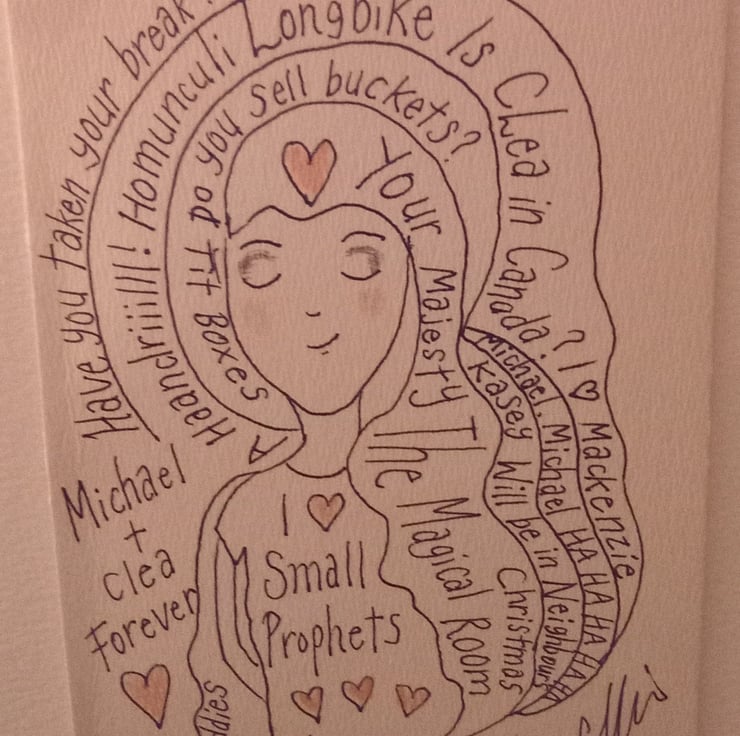 Have you taken your break
Haandriiillll! Homunculi Longbike Is Clea in Canada? I ♡ Mackenzie
A Sexoa tit do you sell buckets?
Your Majesty The Magical Room
Michael, Michael HA HA HA HA HA
Kasey Will be in Neighbours
Christmas
Michael
+
Clea
Forever
I ♡
Small
Prophets